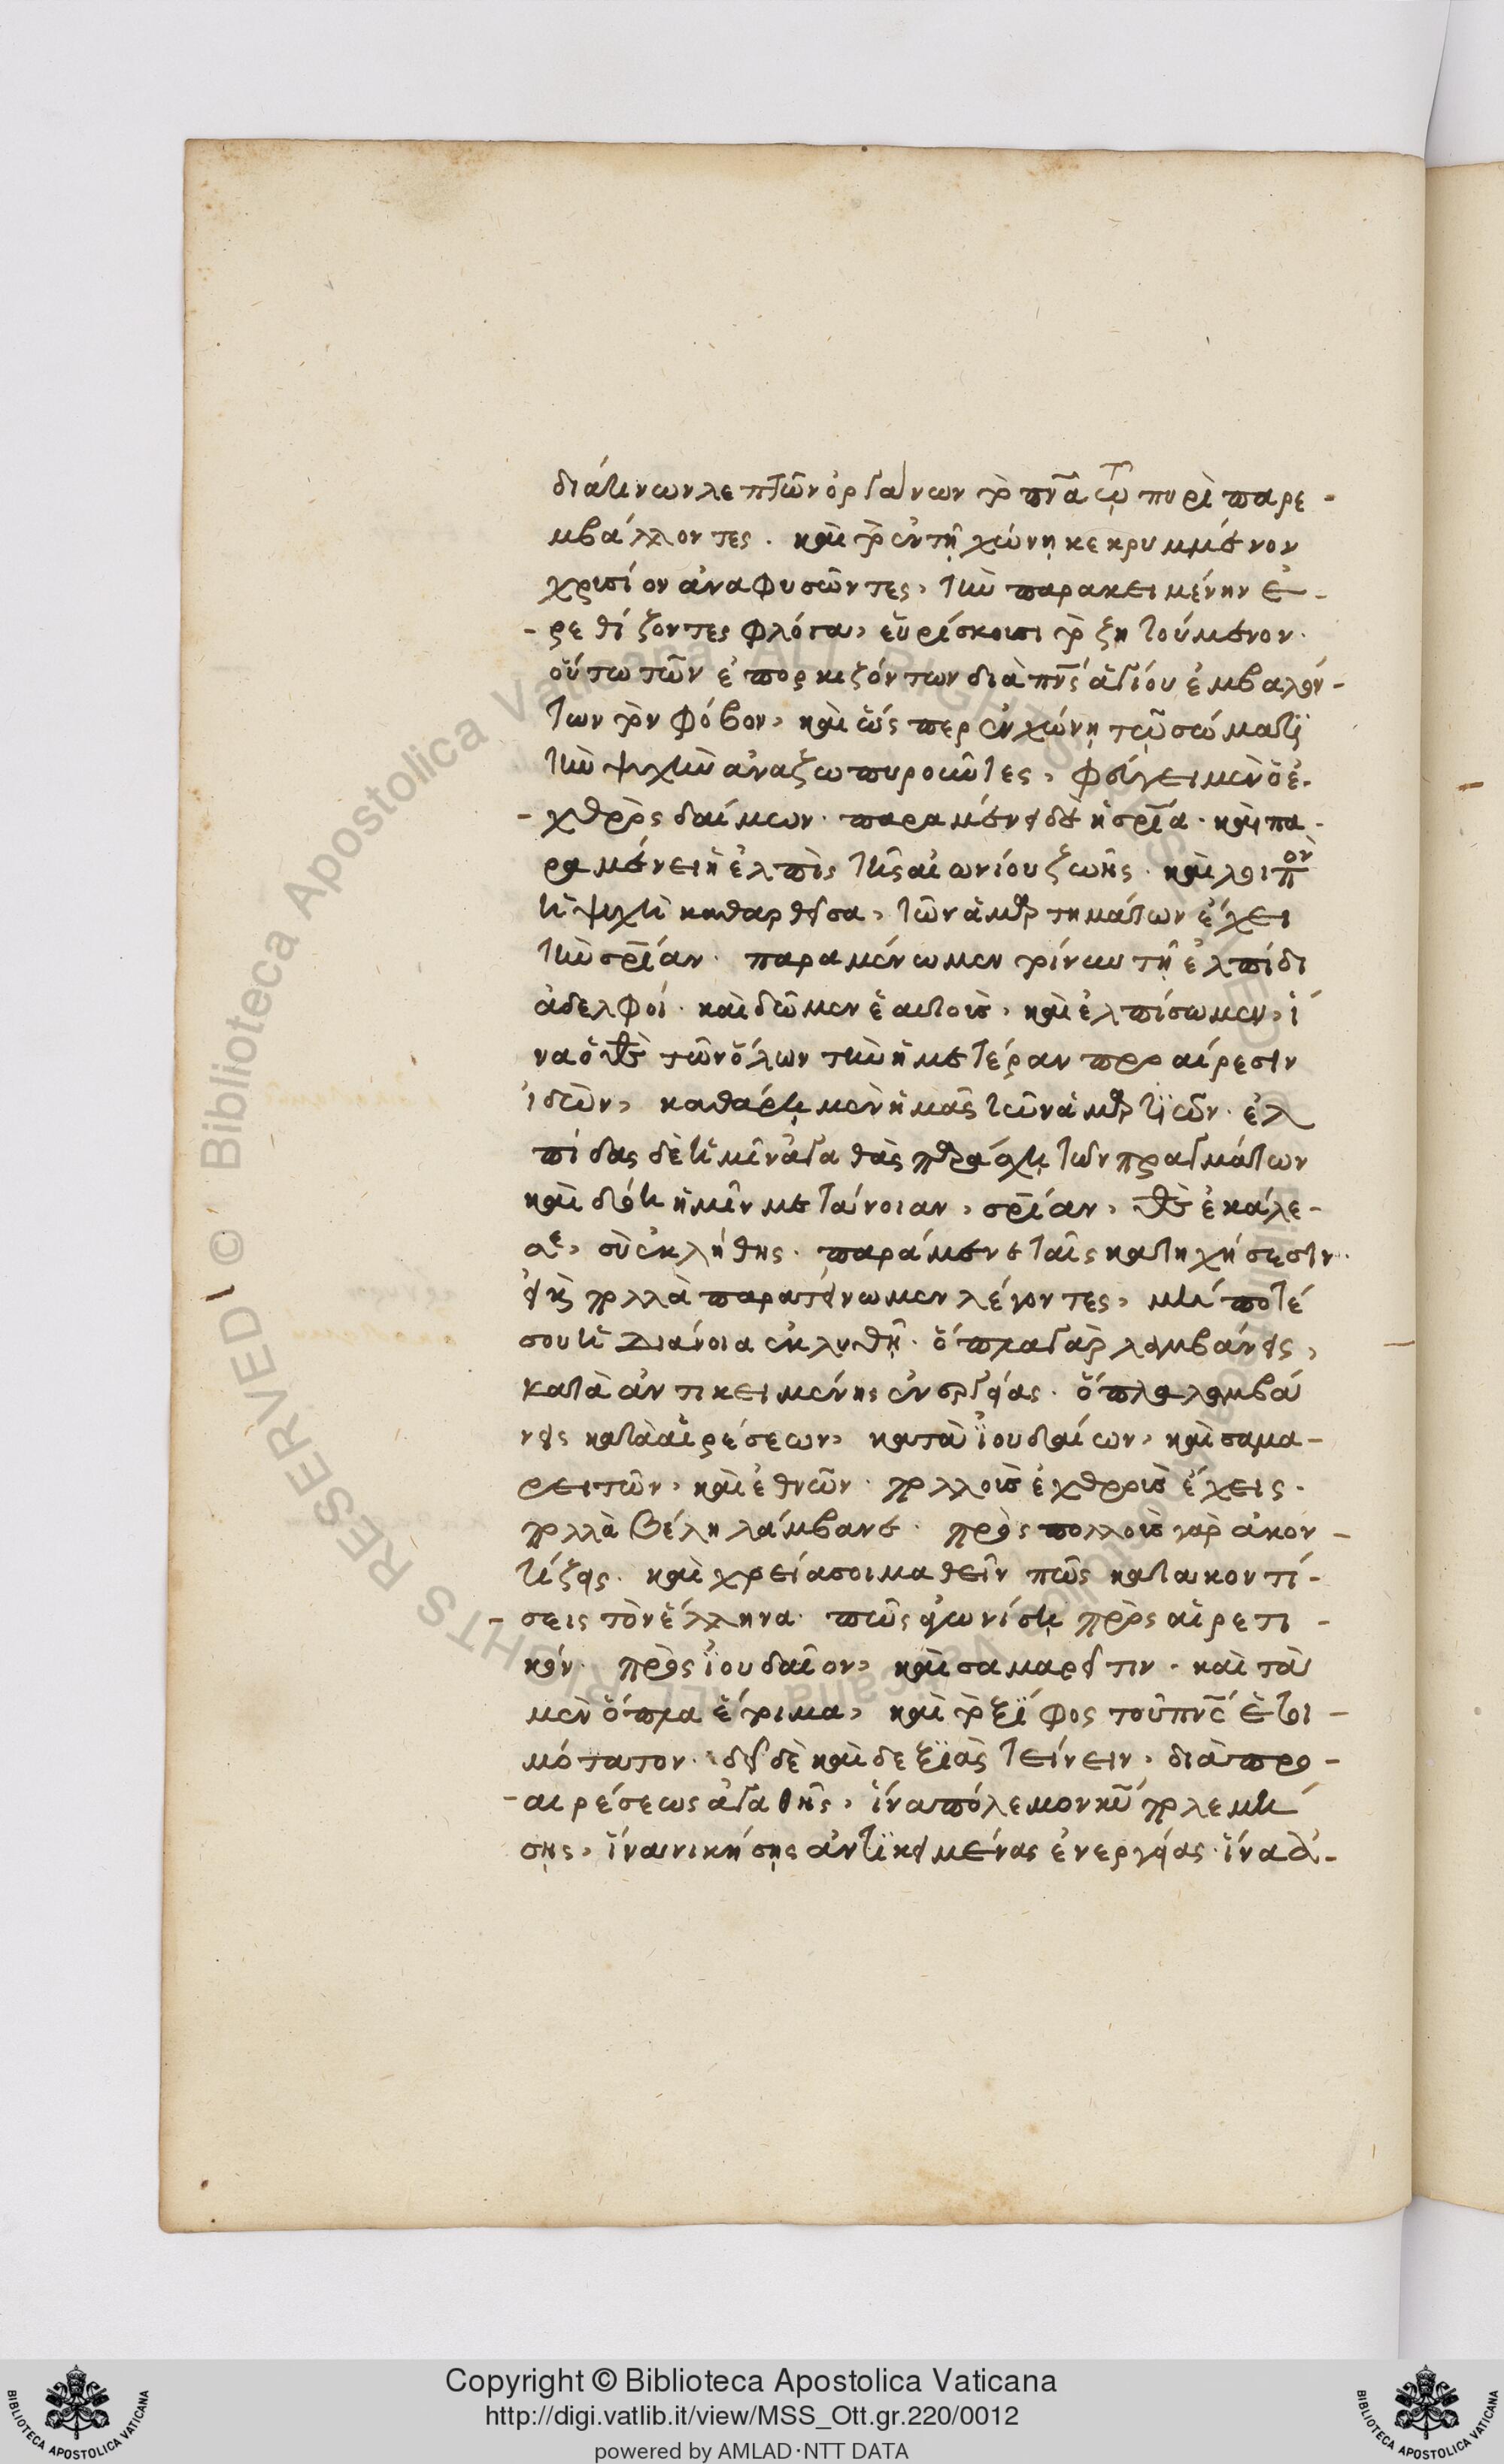 διά τινων λεπτῶν ὀργάνων τὸ πν̅α τῷ πυρὶ παρε-
μβάλλοντες. καὶ τὸ ἐν τῇ χώνῃ κεκρυμμένον
χρυσίον ἀναφυσῶντες, τὴν παρακειμένην ἐ-
-ρεθίζοντες φλόγα, εὑρίσκουσι τὸ ζητούμενον.
οὕτω τῶν ἐπορκιζόντων διὰ πν̅ς ἁγίου ἐμβαλόν-
των τὸν φόβον, καὶ ὥσπερ ἐν χώνῃ τῷ σώματι
τὴν ψυχὴν ἀναζωπυροῦντες, φεύγει μὲν ὁ ἐ-
-χθρὸς δαίμων. παραμένει δὲ ἡ σρ̅ία. καὶ πα-
ραμένει ἡ ἐλπὶς τῆς αἰωνίου ζωῆς. καὶ λοιπὸν
ἡ ψυχὴ καθαρθεῖσα, τῶν ἁμαρτημάτων ἔχει
τὴν σρ̅ίαν. παραμένωμεν τοίνυν τῇ ἐλπίδι
ἀδελφοί. καὶ δῶμεν ἑαυτοὺς, καὶ ἐλπίσωμεν, ἵ
να ὁ θς̅ τῶν ὅλων τὴν ἡμετέραν προαίρεσιν
ἰδὼν, καθάρῃ μὲν ἡμᾶς τῶν ἁμαρτιῶν. ἐλ
πίδας δὲ ἡμῖν ἀγαθὰς παράσχῃ τῶν πραγμάτων
καὶ δώῃ ἡμῖν μετάνοιαν, σρ̅ίαν, θς̅ ἐκάλε-
σε, σὺ ἐκλήθης. παράμενε ταῖς κατηχήσεσιν.
εἰ κ̀ πολλὰ παρατείνωμεν λέγοντες, μήποτέ
σου ἡ διάνοια ἐκλυθῇ. ὅπλα γὰρ λαμβάνεις,
κατὰ ἀντικειμένης ἐνεργείας. ὅπλα λαμβά
νεις κατὰ αἱρέσεων, κατὰ ἰουδαίων, καὶ σαμα-
ρειτῶν, καὶ ἐθνῶν. πολλοὺς ἐχθροὺς ἔχεις.
πολλὰ βέλη λάμβανε. πρὸς πολλοὺς γὰρ ἀκον-
τίζεις. καὶ χρεία σοι μαθεῖν πῶς κατακοντί-
-σεις τὸν ἕλληνα. πῶς ἀγωνίσῃ πρὸς αἱρετι-
κόν. πρὸς ἰουδαῖον, καὶ σαμαρείτην. καὶ τὰ
μὲν ὅπλα ἕτοιμα, καὶ τὸ ξίφος τοῦ πν̅ς ἑτοι-
μότατον. δεῖ δὲ καὶ δεξιὰς τείνειν, διὰ προ-
-αιρέσεως ἀγαθῆς, ἵνα πόλεμον κυ̅ πολεμή
σῃς, ἵνα νικήσῃς ἀντικειμένας ἐνεργείας. ἵνα ἀ-
Copyright © Biblioteca Apostolica Vaticana
http://digi.vatlib.it/view/MSS_Ott.gr.220/0012
powered by AMLAD·NTT DATA